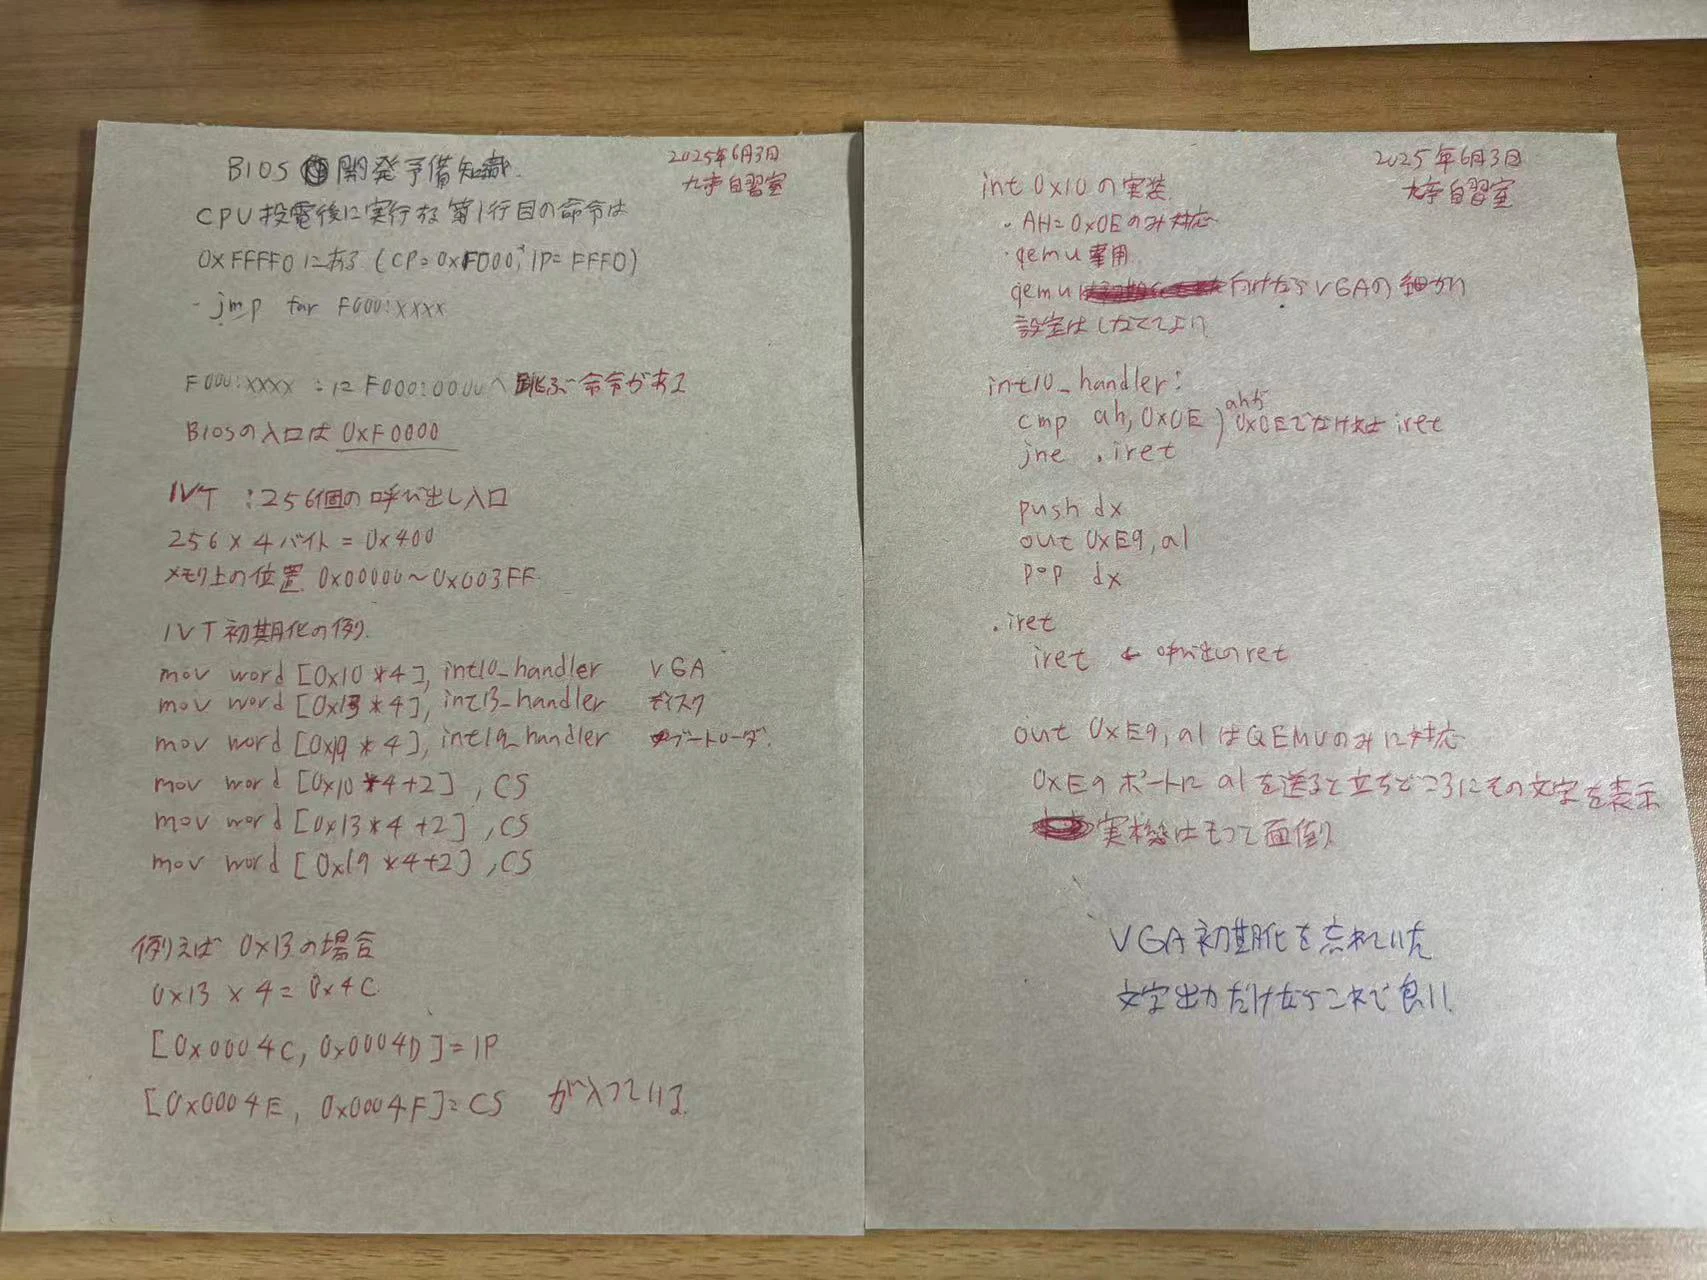 BIOS 開発予備知識
2025年6月3日
自習室
CPU投電後に実行する第1行目の命令は
0xFFFF0にある (CP=0xF000, IP=FFF0)
- jmp far F000:XXXX
F000:XXXX : に F000:0000へ跳ぶ命令がある
BIOSの入口は 0xF0000
IVT : 256個の呼び出し入口
256 × 4バイト = 0x400
メモリ上の位置 0x00000～0x003FF
IVT初期化の例
mov word [0x10 *4], int10_handler VGA
mov word [0x13 *4], int13_handler ディスク
mov word [0x19 *4], int19_handler ブートローダ
mov word [0x10 *4+2], CS
mov word [0x13 *4+2], CS
mov word [0x19 *4+2], CS
例えば 0x13の場合
0x13 × 4 = 0x4C
[0x0004C, 0x0004D] = IP
[0x0004E, 0x0004F] = CS が入っている
2025年6月3日
自習室
int 0x10の実装
・AH=0x0Eのみ対応
・qemu専用
qemu 向けならVGAの細かい
設定はしなくてよい
int10_handler:
cmp ah, 0x0E ) ahが 0x0Eでなければ iret
jne .iret
push dx
out 0xE9, al
pop dx
.iret
iret ← 呼び出しのret
out 0xE9, al はQEMUのみに対応
0xE9ポートに alを送ると立ちどころにその文字を表示
実機はもって面倒
VGA初期化を忘れていた
文字出力だけならこれで良い